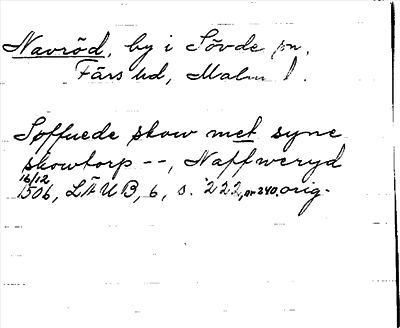 Navröd, by i Sövde sn,
Färs hd, Malm l.
Søffuede skow met syne
skowtorp --, Naffweryd
16/12
1506, LÄUB, 6, s. 222, nr 240. orig.